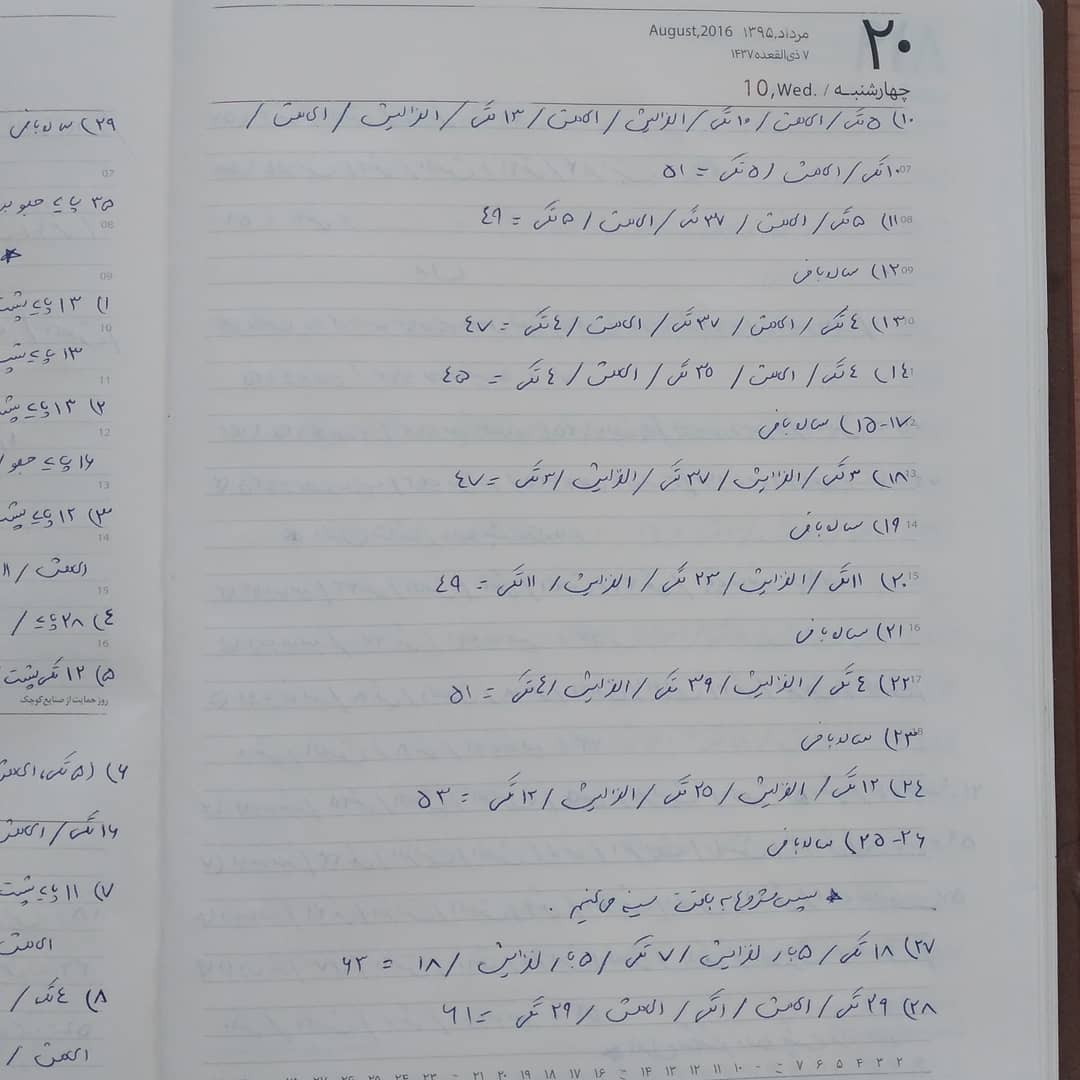 مرداد,۱۳۹۵ August,2016
۷ ذی‌القعده ۱۴۳۷
۲۰
چهارشنبه / 10,Wed.
۱۰) ۵ تک / کاهش / ۱۰ تک / افزایش / کاهش / ۱۳ تک / افزایش / کاهش /
۱۰ تک / کاهش / ۵ تک = ۵۱
۱۱) ۵ تک / کاهش / ۳۷ تک / کاهش / ۵ تک = ٤۹
۱۲) ساده بافی
۱۳) ٤ تک / کاهش / ۳۷ تک / کاهش / ٤ تک = ٤۷
۱٤) ٤ تک / کاهش / ۳۵ تک / کاهش / ٤ تک = ٤۵
۱۵-۱۷) ساده بافی
۱۸) ۳ تک / افزایش / ۳۷ تک / افزایش / ۳ تک = ٤۷
۱۹) ساده بافی
۲۰) ۱۱ تک / افزایش / ۲۳ تک / افزایش / ۱۱ تک = ٤۹
۲۱) ساده بافی
۲۲) ٤ تک / افزایش / ۳۹ تک / افزایش / ٤ تک = ۵۱
۲۳) ساده بافی
۲٤) ۱۲ تک / افزایش / ۲۵ تک / افزایش / ۱۲ تک = ۵۳
۲۵-۲۶) ساده بافی
* سپس شروع به بافت سینه می‌کنیم.
۲۷) ۱۸ تک / ۵ بار افزایش / ۷ تک / ۵ بار افزایش / ۱۸ = ۶۳
۲۸) ۲۹ تک / کاهش / ۱ تک / کاهش / ۲۹ تک = ۶۱
۲۹) ساده بافی
۳۵ پایه جلو
*
۱) ۱۳ پایه پشت
۱۳ پایه پشت
۲) ۱۳ پایه پشت
۱۶ پایه جلو /
۳) ۱۲ پایه پشت
کاهش / ۱۱
٤) ۲۸ پایه /
۵) ۱۲ تک پشت
روز حمایت از صنایع کوچک
۶) (۵ تک، کاهش
۱۶ تک / کاهش
۷) ۱۱ پایه پشت
کاهش
۸) ٤ تک /
کاهش /